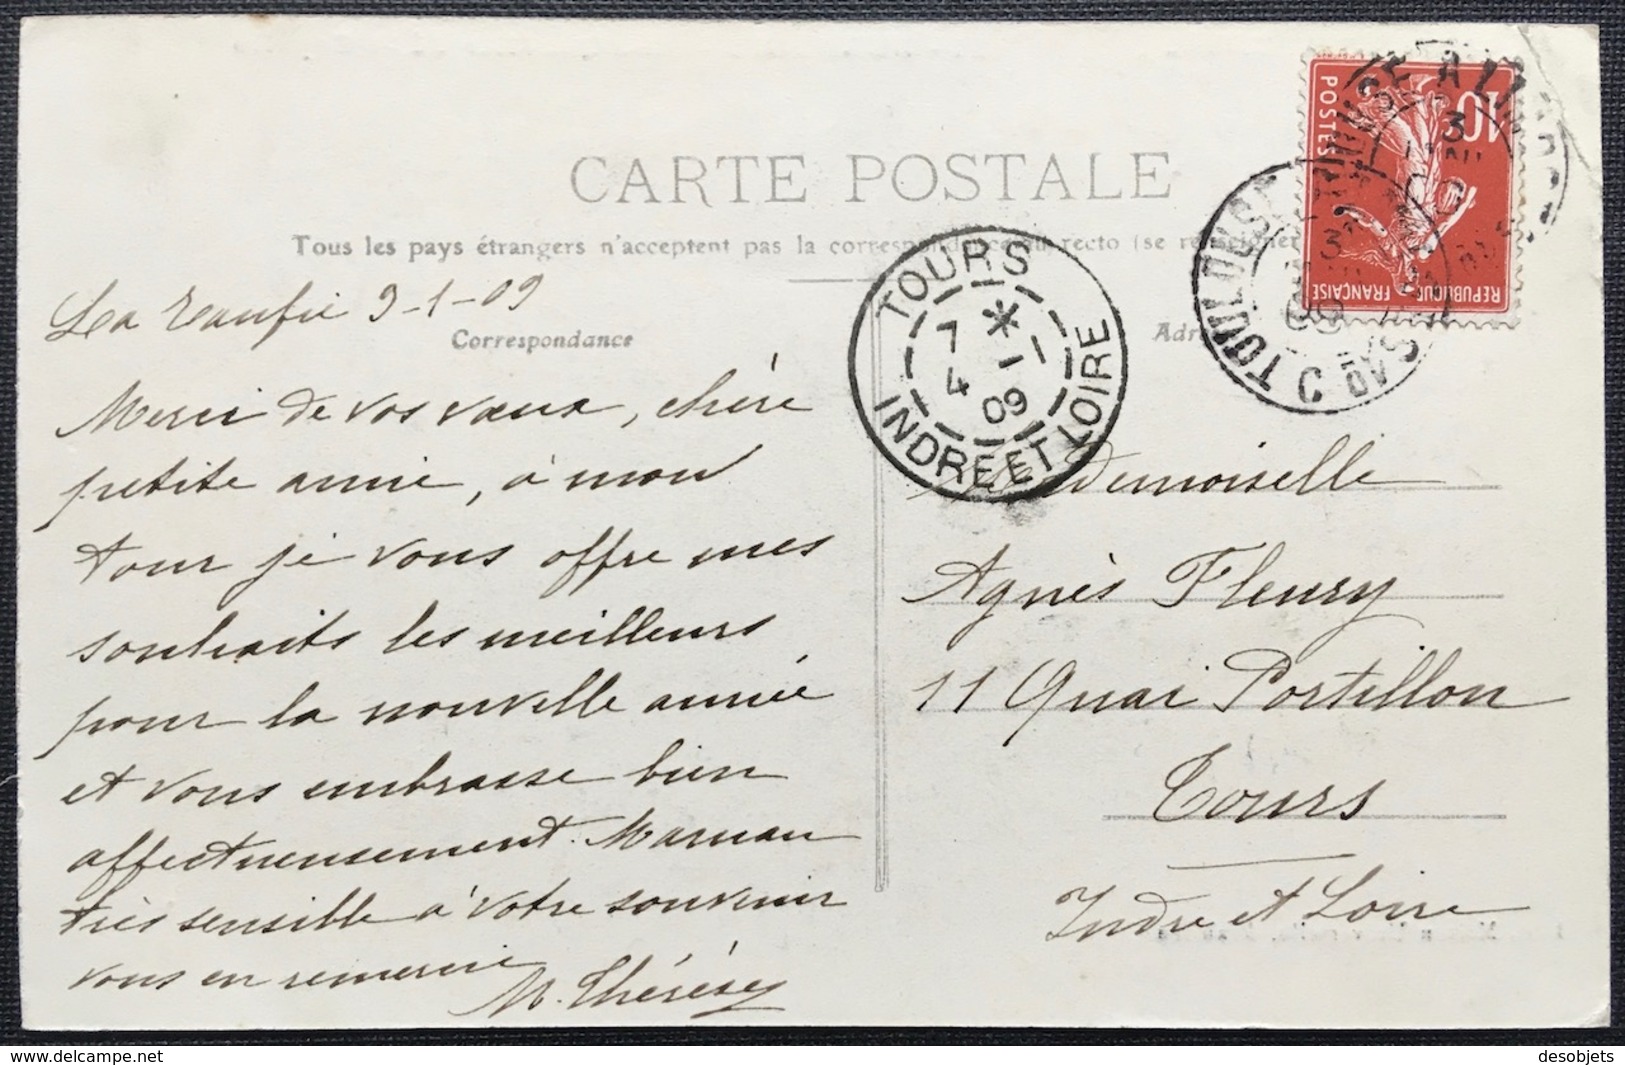 CARTE POSTALE
Tous les pays étrangers n'acceptent pas la correspondance au recto (se renseigner
La 3-1-09
Correspondance
Merci de vos vœux, chère
petite amie, à mon
tour je vous offre mes
souhaits les meilleurs
pour la nouvelle année
et vous embrasse bien
affectueusement. Maman
très sensible à votre souvenir
vous en remercie
M. Thérèse
TOURS
7 * 1
4 09
INDRE ET LOIRE
10
POSTES
REPUBLIQUE FRANÇAISE
TOULOUSE
Adr
Demoiselle
Agnès Fleury
11 Quai Portillon
Tours
Indre et Loire
desobjets